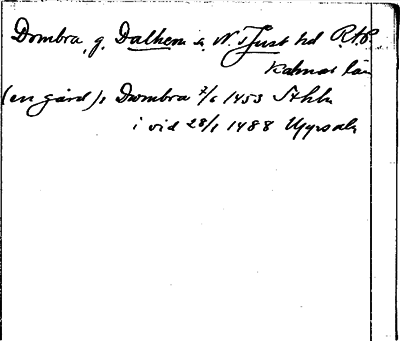 Dombra, g. Dalhem s. N. Tjust hd R.A.P.
Kalmar län
(en gård): Dwmbra 7/6 1453 Sthlm
i vid 28/1 1488 Uppsala